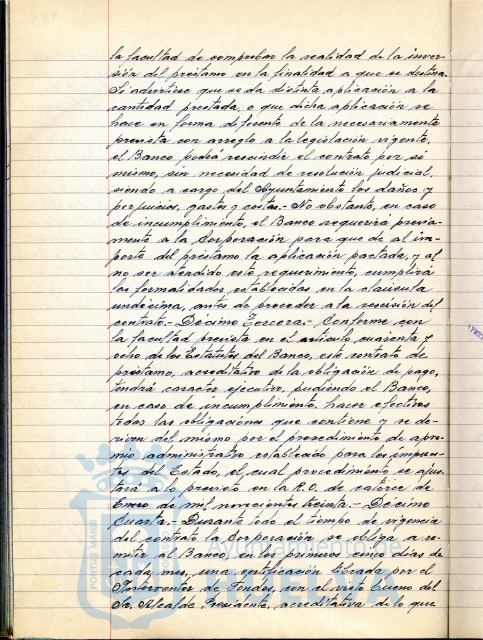 la facultad de comprobar la realidad de la inver-
sión del préstamo en la finalidad a que se destina.
Si advirtiese que se da distinta aplicación a la
cantidad prestada, o que dicha aplicación se
hace en forma diferente de la necesariamente
prevista con arreglo a la legislación vigente,
el Banco podrá rescindir el contrato por sí
mismo, sin necesidad de resolución judicial,
siendo a cargo del Ayuntamiento los daños y
perjuicios, gastos y costas.- No obstante, en caso
de incumplimiento, el Banco requerirá previa-
mente a la Corporación para que dé al im-
porte del préstamo la aplicación pactada, y al
no ser atendido este requerimiento, cumplirá
las formalidades establecidas en la cláusula
undécima, antes de proceder a la rescisión del
contrato.- Décimo Tercera.- Conforme con
la facultad prevista en el artículo cuarenta y
ocho de los Estatutos del Banco, este contrato de
préstamo, acreditativo de la obligación de pago,
tendrá carácter ejecutivo, pudiendo el Banco,
en caso de incumplimiento, hacer efectivas
todas las obligaciones que contiene y se de-
riven del mismo por el procedimiento de apre-
mio administrativo establecido para los impues-
tos del Estado, el cual procedimiento se ajus-
tará a lo previsto en la R.O. de catorce de
Enero de mil novecientos treinta.- Décimo
Cuarta.- Durante todo el tiempo de vigencia
del contrato la Corporación se obliga a re-
mitir al Banco, en los primeros cinco días de
cada mes, una certificación librada por el
Interventor de Fondos, con el visto bueno del
Sr. Alcalde Presidente, acreditativa de lo que
PORTUS MARIS
HUELVA